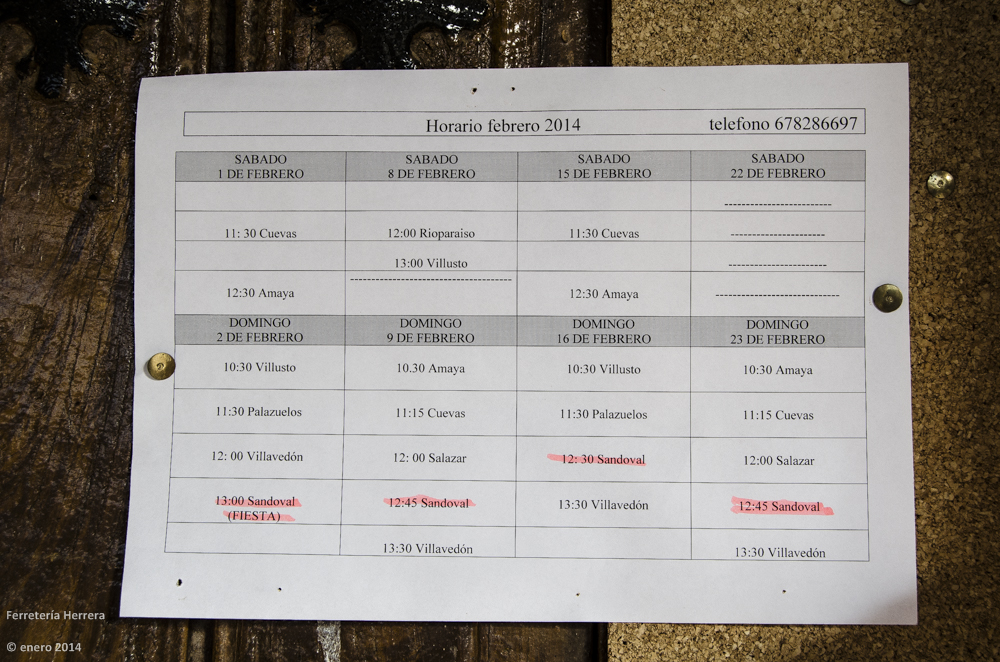 Horario febrero 2014 telefono 678286697
SABADO SABADO SABADO SABADO
1 DE FEBRERO 8 DE FEBRERO 15 DE FEBRERO 22 DE FEBRERO
-------------------------
11: 30 Cuevas 12:00 Rioparaiso 11:30 Cuevas ----------------------
13:00 Villusto -----------------------
--------------------------------------
12:30 Amaya 12:30 Amaya -----------------------------
DOMINGO DOMINGO DOMINGO DOMINGO
2 DE FEBRERO 9 DE FEBRERO 16 DE FEBRERO 23 DE FEBRERO
10:30 Villusto 10.30 Amaya 10:30 Villusto 10:30 Amaya
11:30 Palazuelos 11:15 Cuevas 11:30 Palazuelos 11:15 Cuevas
12: 00 Villavedón 12: 00 Salazar 12: 30 Sandoval 12:00 Salazar
13:00 Sandoval 12:45 Sandoval 13:30 Villavedón 12:45 Sandoval
(FIESTA)
13:30 Villavedón 13:30 Villavedón
Ferretería Herrera
© enero 2014